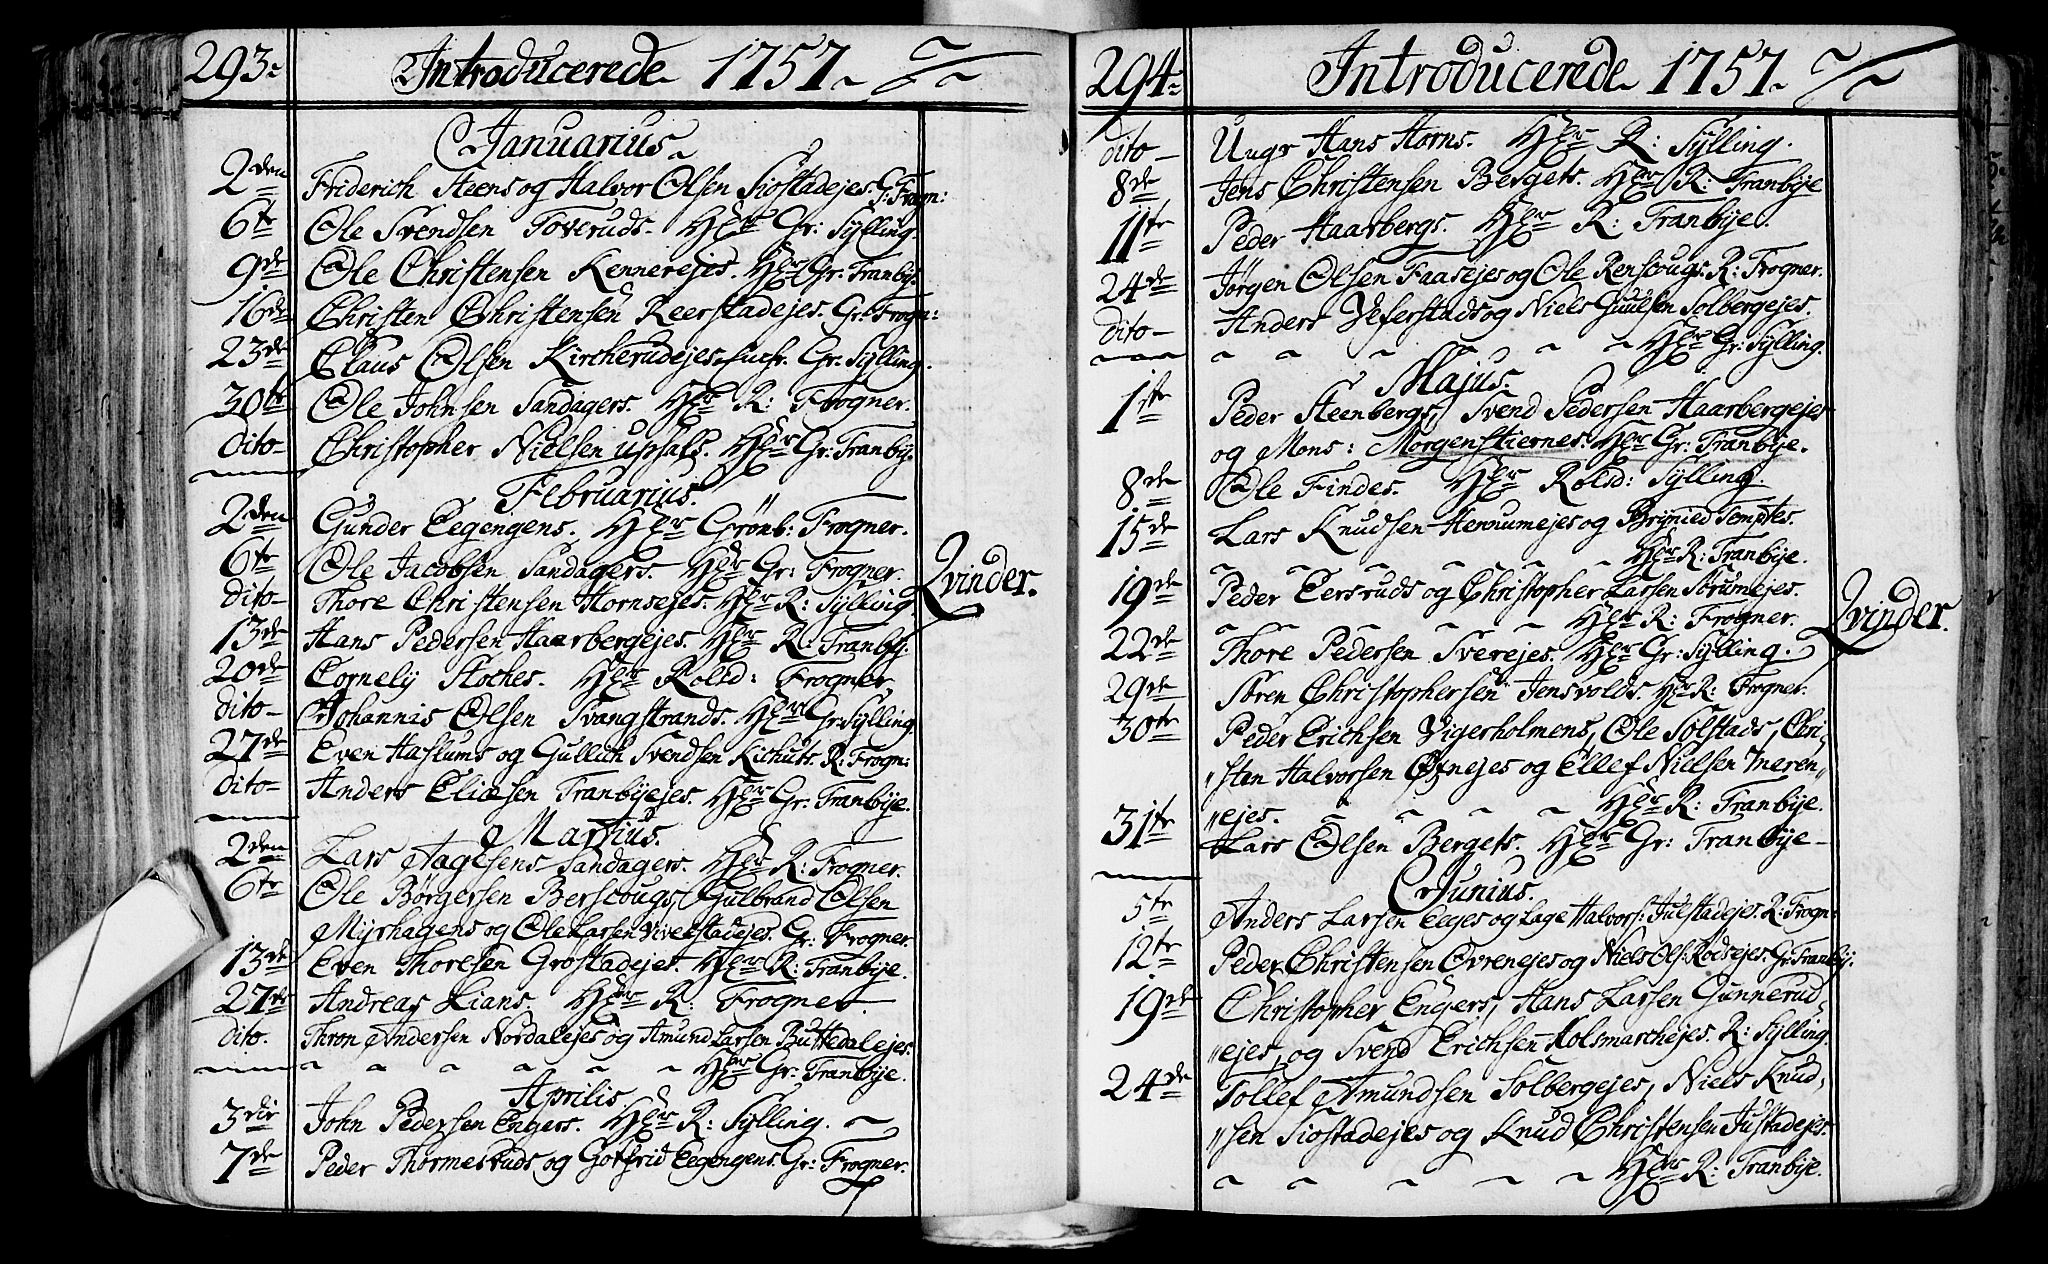 293 Introducerede 1757
Januarius
2den Friderich Steens og Halvor Olsen Siøstadejes. G: Frogn:
6te Ole Svendsen Toveruds. Hr Gr: Sylling.
9de Ole Christensen Kennerejes. Hr Gr: Tranby.
16de Christen Christensen Reerstadejes. Gr: Frogn:
23de Claus Olsen Kircherudejes Gr: Sylling.
30te Ole Johnsen Sandagers. Hr R: Frogner.
dito Christopher Nielsen Upsals. Hr Gr: Tranby.
Februarius.
2den Gunder Eegengens. Hr Grønb: Frogner.
6te Ole Jacobsen Sandagers. Hr Gr: Frogner.
dito Thore Christensen Hornsejes. Hr R: Sylling
13de Hans Pedersen Haarbergejes. Hr R: Tranby.
20de Cornely Stoches. Hr Rolsd: Frogner
dito Johannis Olsen Svangstrands. Hr Gr: Sylling
27de Even Haslums og Gulluth Svendsen Kichuts. R: Frogn:
dito Anders Eliæsen Tranbyejes. Hr Gr: Tranbye.
Qvinder.
Martius.
2den Lars Aagesens Sandagers. Hr R: Frogner.
6te Ole Børgersen Berscougs, Gulbrand Olsen
Myrhagens og Ole Larsen Vivelstadejes. Gr: Frogner.
13de Even Thoresen Grostadejet. Hr R: Tranbye.
27de Andreas Lians. Hr R: Frogner
dito. Thron Andersen Nordalejes og Amund Larsen Buttedalejes.
Hr Gr: Tranbye.
Aprilis
3die John Pedersen Engers. Hr R: Sylling.
7de Peder Thormesruds og Gotfrid Eegengens. Gr: Frogner.
294 Introducerede 1757
dito Ungr Hans Horns. Hr R: Sylling.
8de Jens Christensen Bergets. Hr R: Tranbye
11te Peder Haarbergs. Hr R: Tranbye.
24de Jørgen Olsen Faasejes og Ole Renscougs. R: Frogner.
dito Anders Veferstads og Niels Guulsen Solbergejes.
Hr Gr: Sylling.
Majus.
1ste Peder Steenbergs, Svend Pedersen Haarbergejes
og Mons: Morgenstiernes. Hr Gr: Tranbye.
8de Ole Findes. Hr Rolsd: Sylling.
15de Lars Knudsen Hennumejes og Brynied Temptes.
Hr R: Tranbye.
19de Peder Eersruds og Christopher Larsen Strumejes.
Hr R: Frogner.
22de Thore Pedersen Sverejes. Hr Gr: Sylling.
29de Søren Christophersen Jensvolds. Hr R: Frogner.
30te Peder Erichsen Vigerholmens, Ole Solstads, Chri,
"sten Halvorsen Østnejes og Ellef Nielsen Meren"
"ejes. Hr R: Tranbye.
31te Lars Olsen Bergets. Hr Gr: Tranbye
Qvinder.
Junius.
5te Anders Larsen Eejes og Lage Halvors: Julstadejes. R: Frogn:
12te Peder Christensen Øvrenejes og Niels Ols: Rodsejes. Gr: Tranby.
19de Christopher Engers, Hans Larsen Gunnerud,
"ejes, og Svend Erichsen Holsmarchejes. R: Sylling.
24de Tollef Amundsen Solbergejes, Niels Knud,
"sen Siostadejes og Knud Christensen Justadejes.
Hr R: Tranbye.